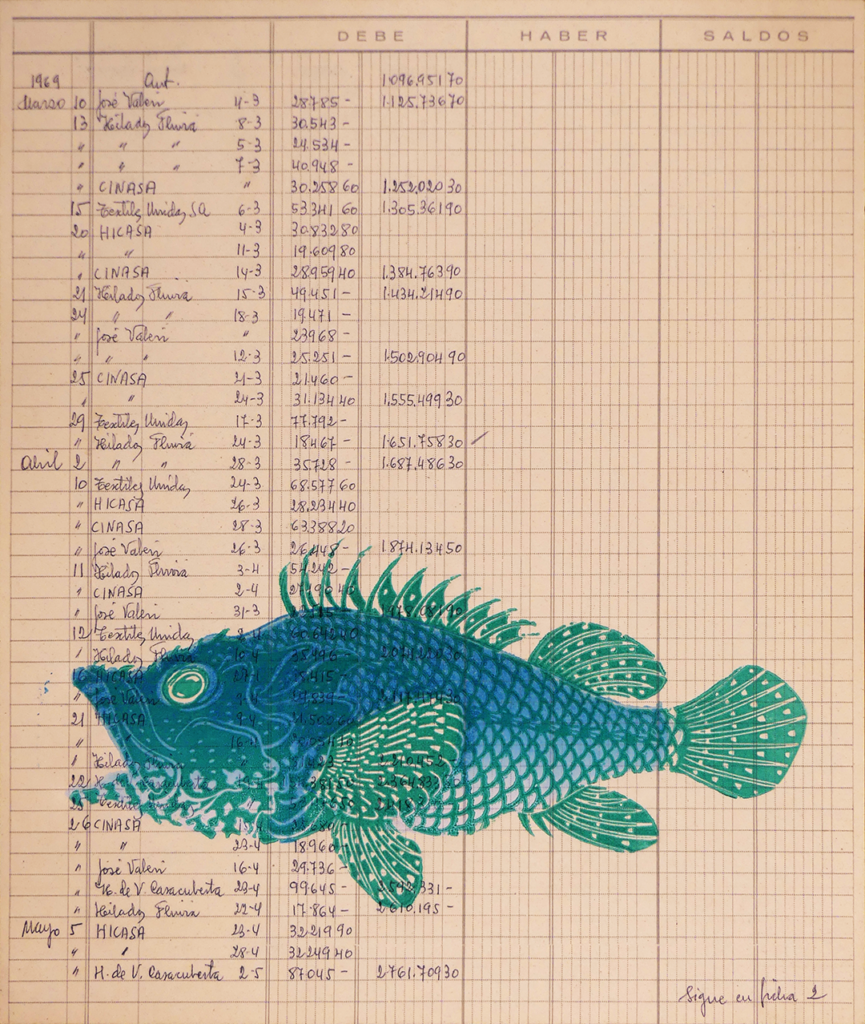 DEBE HABER SALDOS
1969 Ant. 1.096.951 70
Marzo 10 José Valeri 4-3 28.785 - 1.125.736 70
13 Hilados Fluviá 8-3 30.543 -
" " " 5-3 24.534 -
" " " 7-3 40.948 -
" CINASA " 30.258 60 1.252.020 30
15 Textiles Unidas, SA 6-3 53.341 60 1.305.361 90
20 HICASA 4-3 30.832 80
" " 11-3 19.609 80
" CINASA 14-3 28.959 40 1.384.763 90
21 Hilados Fluviá 15-3 49.451 - 1.434.214 90
24 " " 18-3 19.471 -
" José Valeri " 23.968 -
" " " 12-3 25.251 - 1.502.904 90
25 CINASA 21-3 21.460 -
" " 24-3 31.134 40 1.555.499 30
29 Textiles Unidas 17-3 77.792 -
" Hilados Fluviá 24-3 18.467 - 1.651.758 30
Abril 2 " " 28-3 35.728 - 1.687.486 30
10 Textiles Unidas 24-3 68.577 60
" HICASA 26-3 28.234 40
" CINASA 28-3 63.388 20
" José Valeri 26-3 26.448 - 1.874.134 50
11 Hilados Fluviá 3-4 54.242 -
" CINASA 2-4
" José Valeri 31-3
12 Textiles Unidas
" Hilados Fluviá 10-4 35.496 -
HICASA
José Valeri 9-4
21 HICASA 9-4
"
" Hilados
22
Textiles
26 CINASA
" " 23-4 18.960 -
" José Valeri 16-4 29.736 -
" H. de V. Casacuberta 23-4 99.645 - 2.592.331 -
" Hilados Fluviá 22-4 17.864 - 2.610.195 -
Mayo 5 HICASA 23-4 32.219 90
" " 28-4 32.249 40
" H. de V. Casacuberta 2-5 87.045 - 2.761.709 30
Sigue en ficha 2